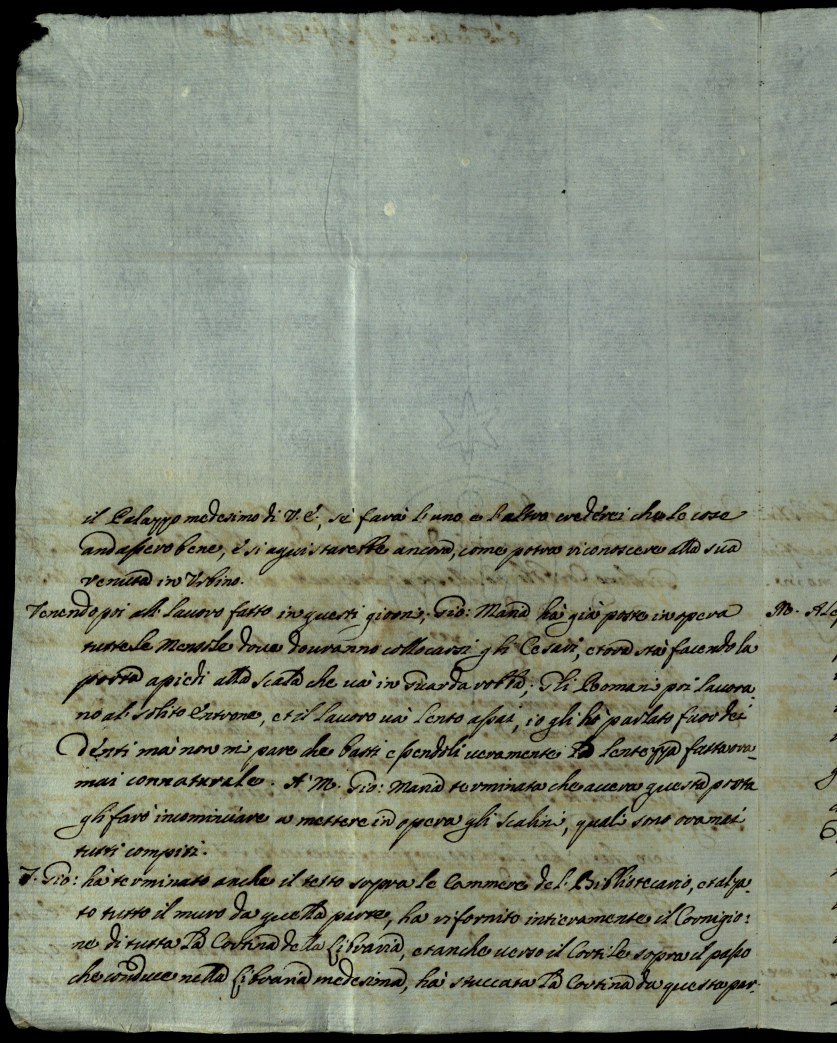 il Palazzo medesimo di V. E., se farà l'uno e l'altro crederei che le cose
andassero bene, e si aquistarebbe ancora, come potra riconoscere alla sua
venuta in Urbino.
Venendo poi al lavoro fatto in questi giorni, Gio: Maria hà già poste in opera
tutte le Mensole dove dovranno collocarsi gli Cesari, et ora stà facendo la
porta a piedi alla scala che và in Guardarobba, Gli Romani poi lavora-
no al solito Entrone, et il lavoro và lento assai, io gli hò parlato fuor dei
Denti mà non mi pare che basti essendoli veramente la lentezza fatta ora-
mai connaturale. A' M. Gio: Maria terminata che avera questa porta
gli farò incominciare a mettere in opera gli scalini, quali sono oramai
tutti compiti.
Gio: hà terminato anche il tetto sopra le Cammere del Bibliotecario, et alza-
to tutto il muro da quella parte, ha rifornito intieramente il Cornigio-
ne di tutta la Cortina della Libraria, et anche verso il Cortile sopra il passo
che conduce nella Libraria medesima, hà stuccata la Cortina da questa par-
M.